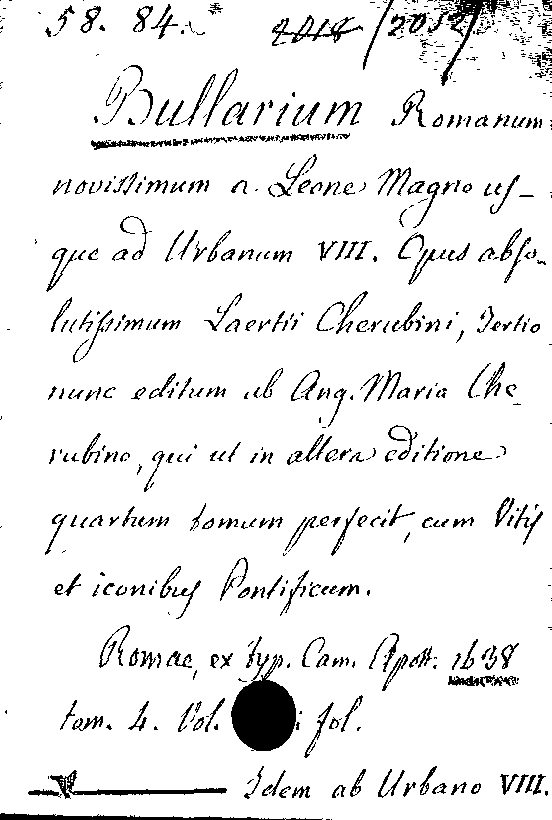 58. 84. 2018 (2052)
Bullarium Romanum
novissimum a Leone Magno us-
que ad Urbanum VIII. Opus abso-
lutissimum Laertii Cherubini, Tertio
nunc editum ab Ang. Maria Che
rubino, qui ut in altera editione
quartum tomum perfecit, cum Vitis
et iconibus Pontificum.
Romae, ex typ. Cam. Apost. 1638
tom. 4. Vol. fol.
Idem ab Urbano VIII.